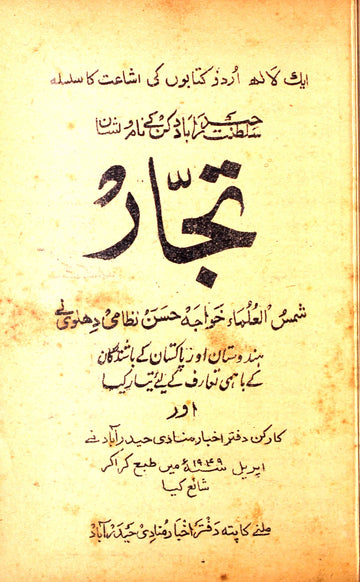 ایک لاکھ اردو کتابوں کی اشاعت کا سلسلہ
سلطنت حیدرآباد دکن کے نام و نشان
تجّار
شمس العلماء خواجہ حسن نظامی دہلوی نے
ہندوستان اور پاکستان کے باشندگان
کے باہمی تعارف کے لیٔے تیار کیا
اور
کارکن دفتر اخبار منادی حیدرآباد نے
اپریل ۱۹۴۹ء میں طبع کراکر
شائع کیا
ملنے کا پتہ دفتر اخبار منادی حیدرآباد